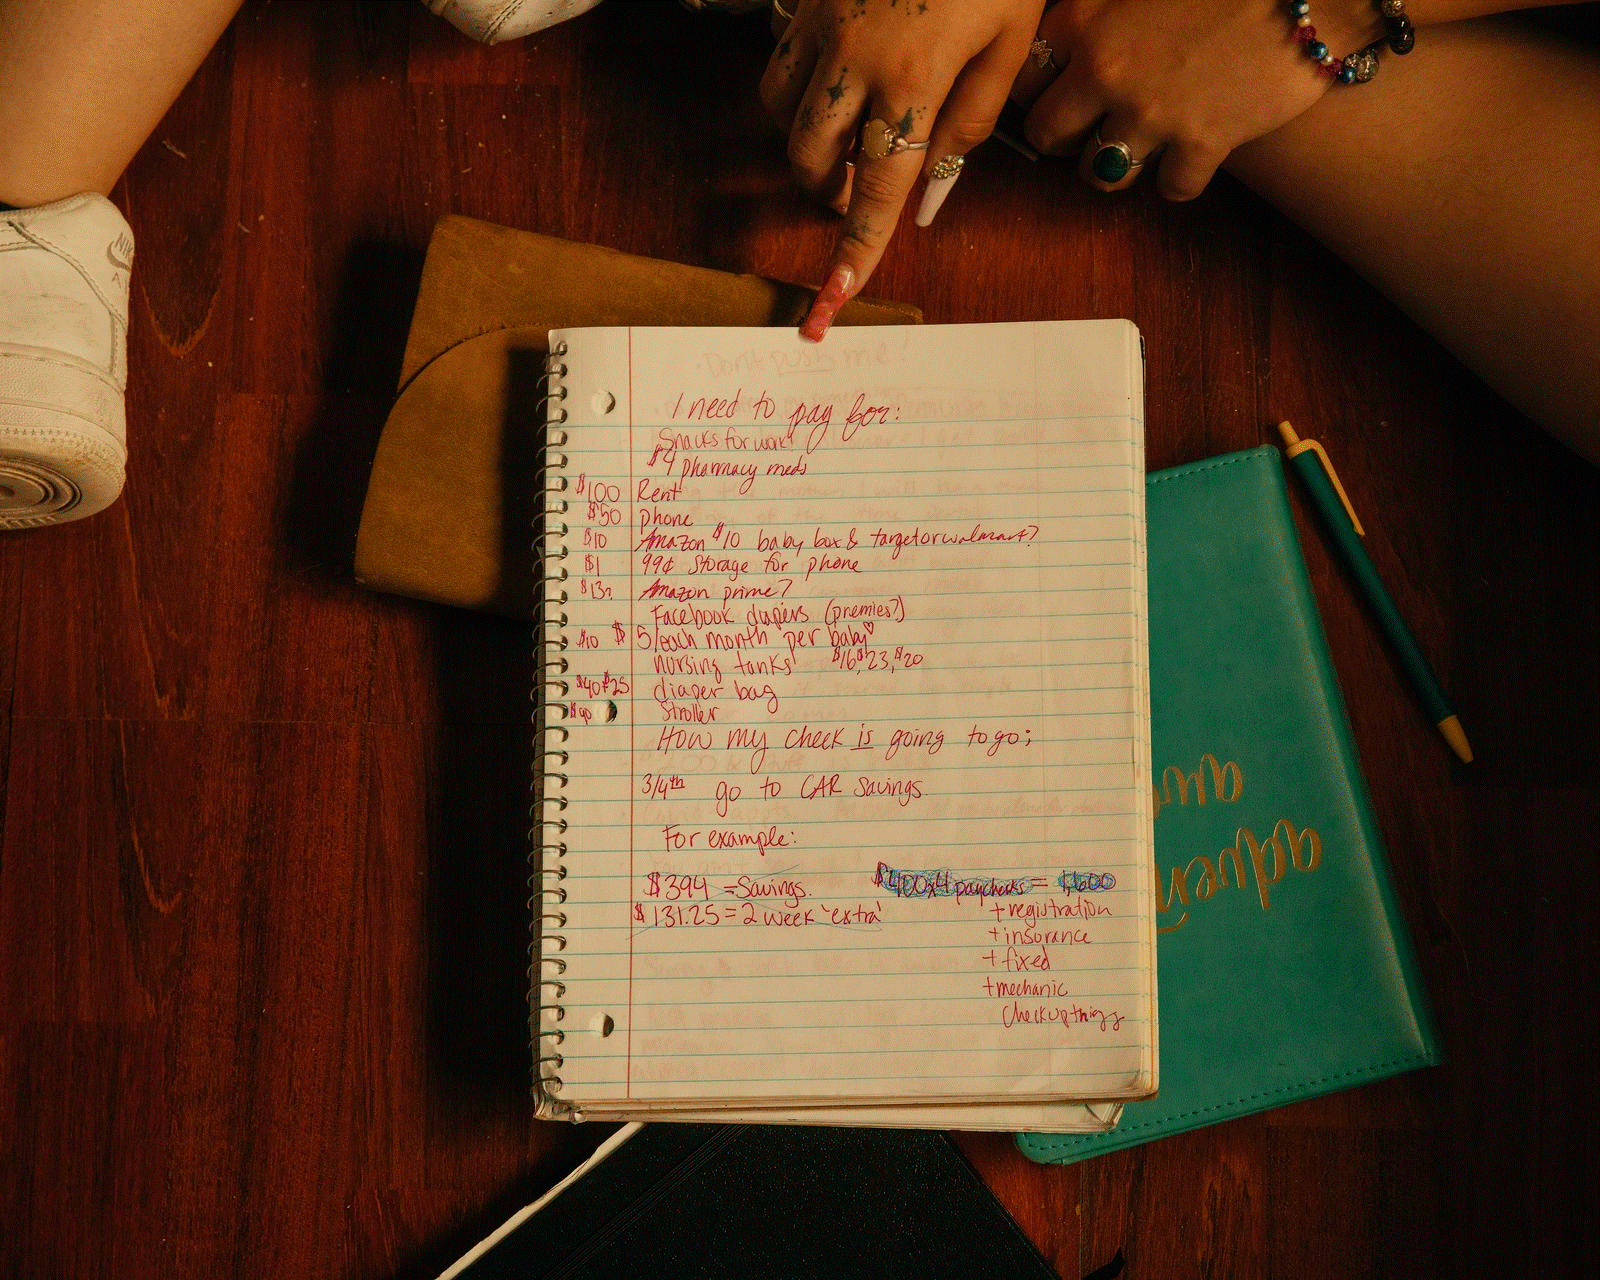 NIKE
Don't push me!
I need to pay for:
Snacks for work!
$4 pharmacy meds
$100 Rent
$50 phone
$10 Amazon $10 baby box & target or walmart?
$1 99¢ storage for phone
$13? Amazon prime?
Facebook diapers (premies?)
$10 $5/each month per baby♡
nursing tanks $16, $23, $20
$40+$25 diaper bag
$90 Stroller
How my check is going to go;
3/4th go to CAR savings.
For example:
$394 = Savings. $400x4 paychecks = 1,600
$131.25 = 2 week 'extra' + registration
+ insurance
+ fixed
+ mechanic
checkup thingy
adven